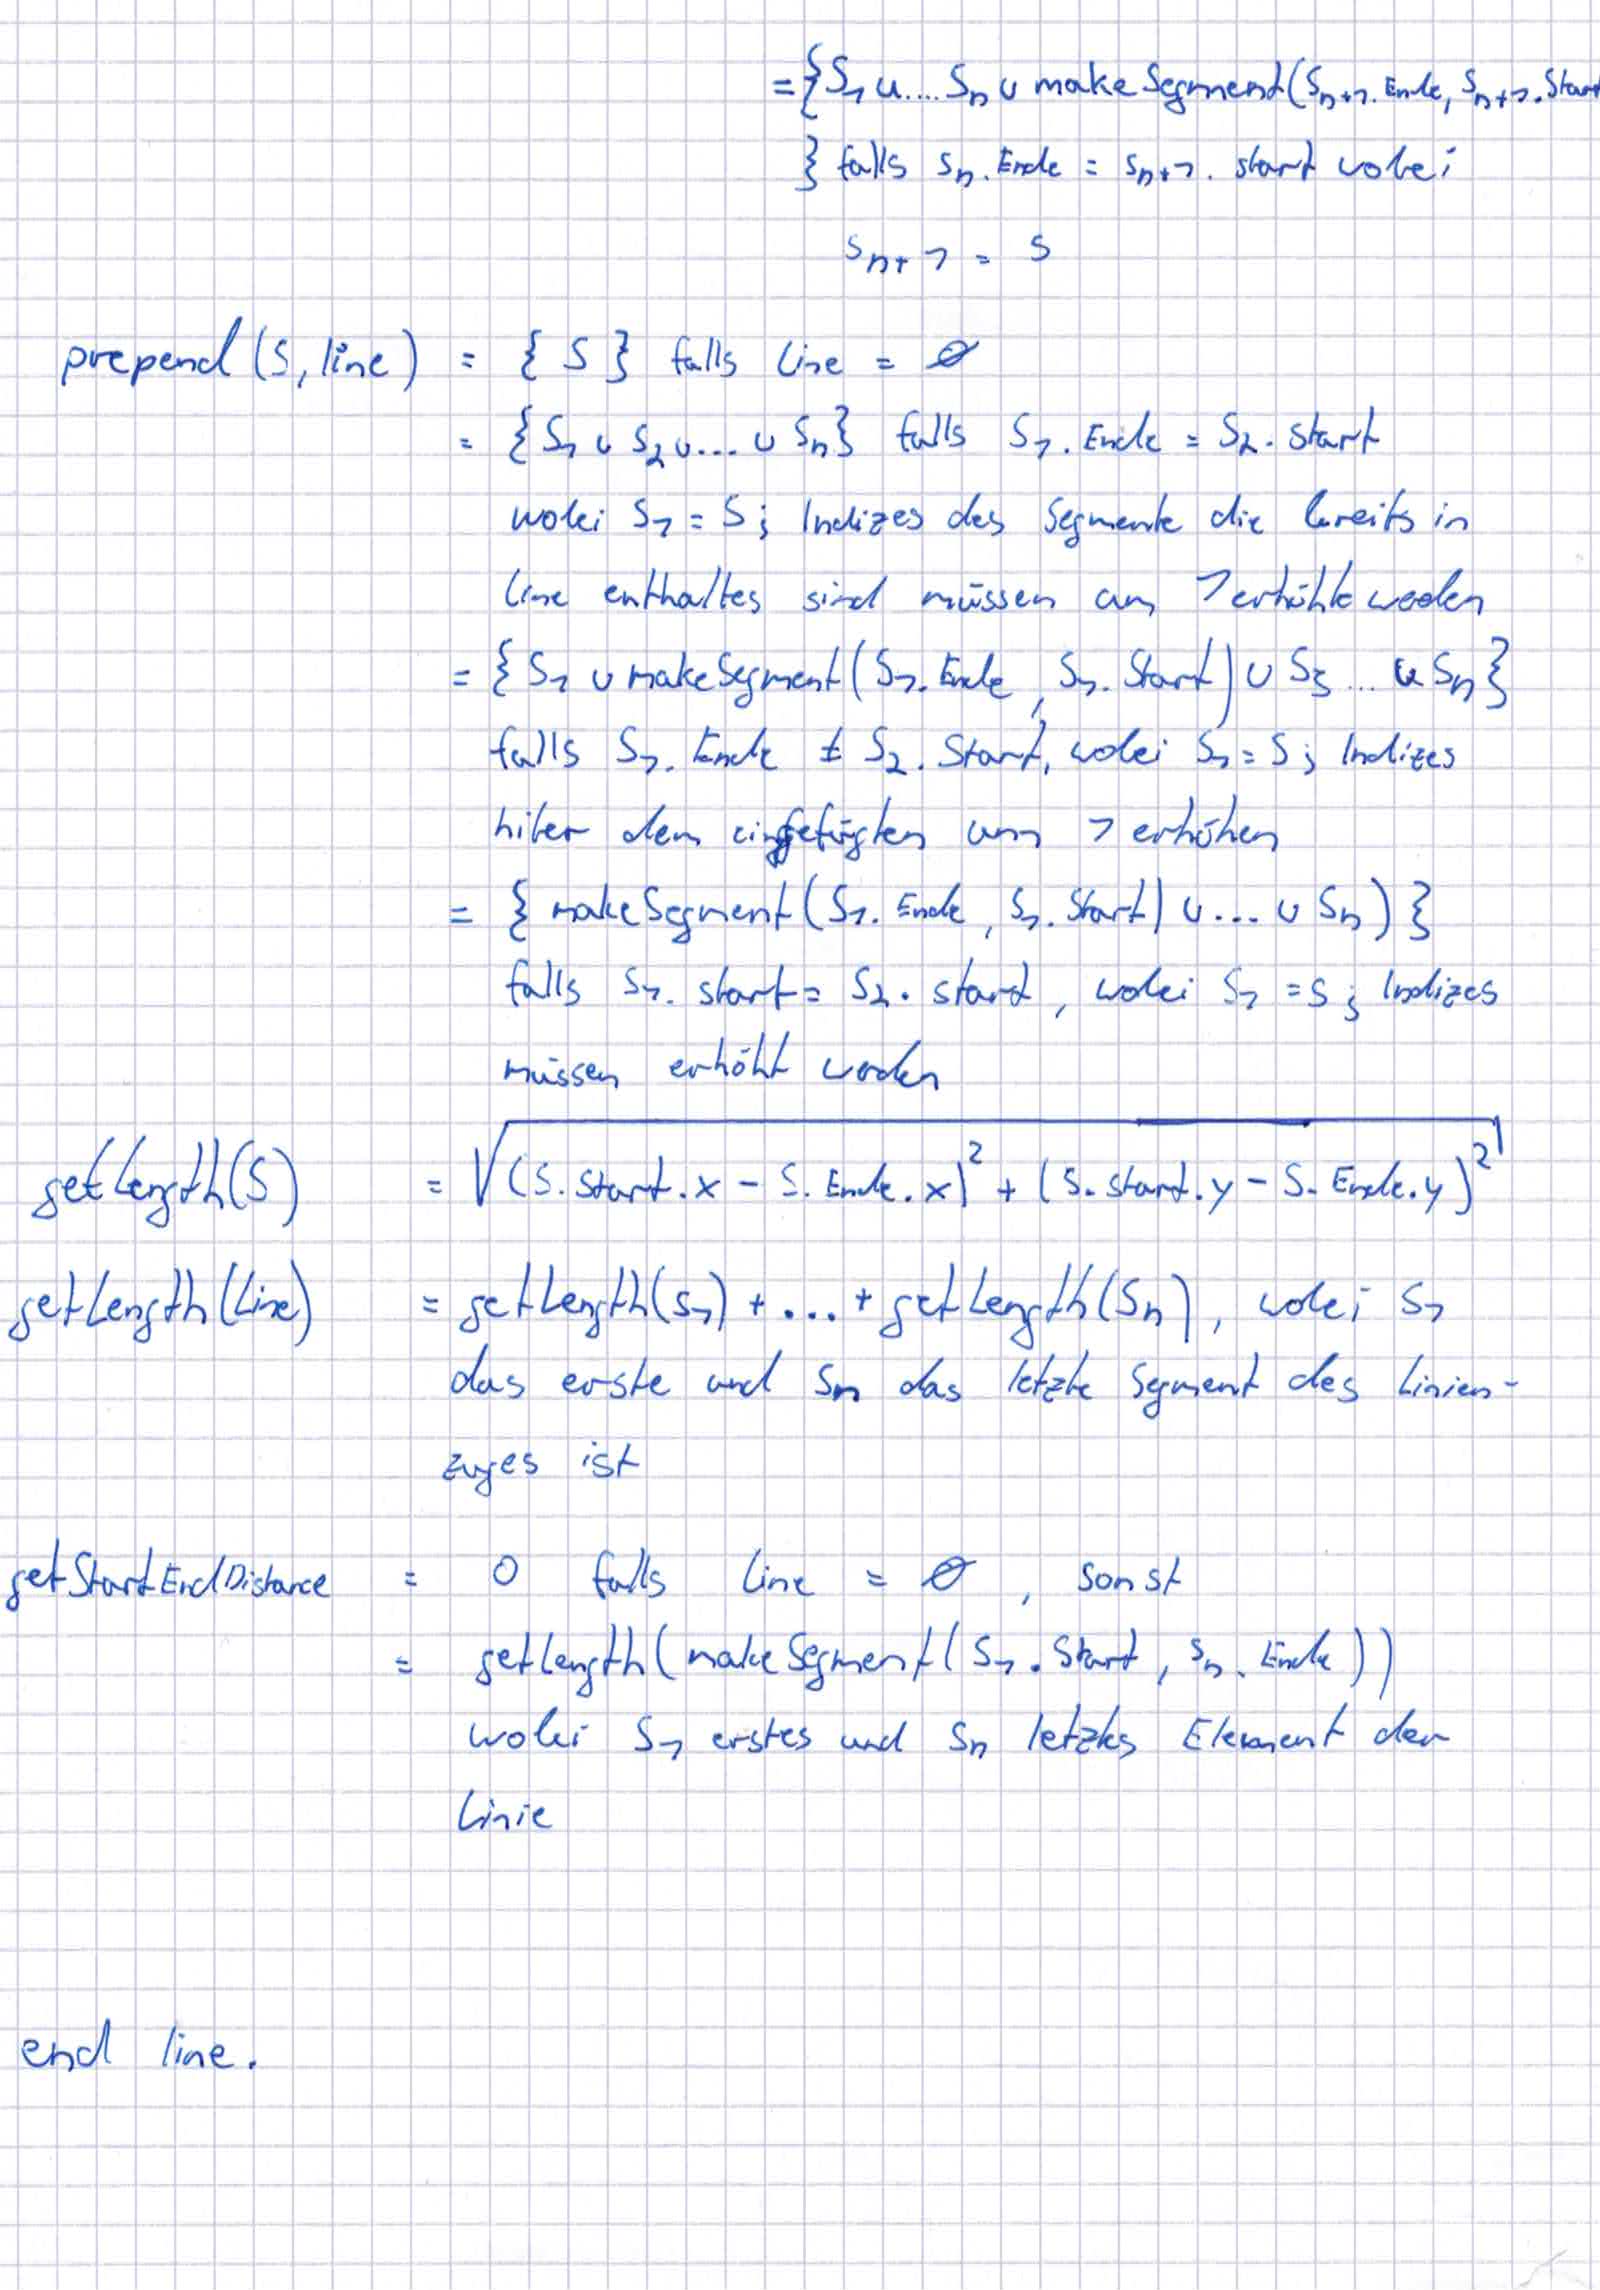 = { S₁ ∪ .... Sₙ ∪ makeSegment(Sₙ₊₁.Ende, Sₙ₊₁.Start
} falls Sₙ.Ende = Sₙ₊₁.start wobei
Sₙ₊₁ = S
prepend(S, line) = { S } falls line = ∅
= { S₁ ∪ S₂ ∪ ... ∪ Sₙ } falls S₁.Ende = S₂.start
wobei S₁ = S; Indizes des Segmente die bereits in
line enthaltes sind müssen um 1 erhöht werden
= { S₁ ∪ makeSegment(S₁.Ende, S₁.Start) ∪ S₃ ... ∪ Sₙ }
falls S₁.Ende ≠ S₂.Start, wobei S₁ = S; Indizes
hiter dem eingefügten um 1 erhöhen
= { makeSegment(S₁.Ende, S₁.Start) ∪ ... ∪ Sₙ) }
falls S₁.start = S₂.start, wobei S₁ = S; Indizes
müssen erhöht werden
getLength(S) = √((S.Start.x - S.Ende.x)² + (S.start.y - S.Ende.y)²)
getLength(Line) = getLength(S₁) + ... + getLength(Sₙ), wobei S₁
das erste und Sₙ das letzte Segment des Linien-
zuges ist
getStartEndDistance = 0 falls line = ∅, sonst
= getLength(makeSegment(S₁.Start, Sₙ.Ende))
wobei S₁ erstes und Sₙ letztes Element der
Linie
end line.